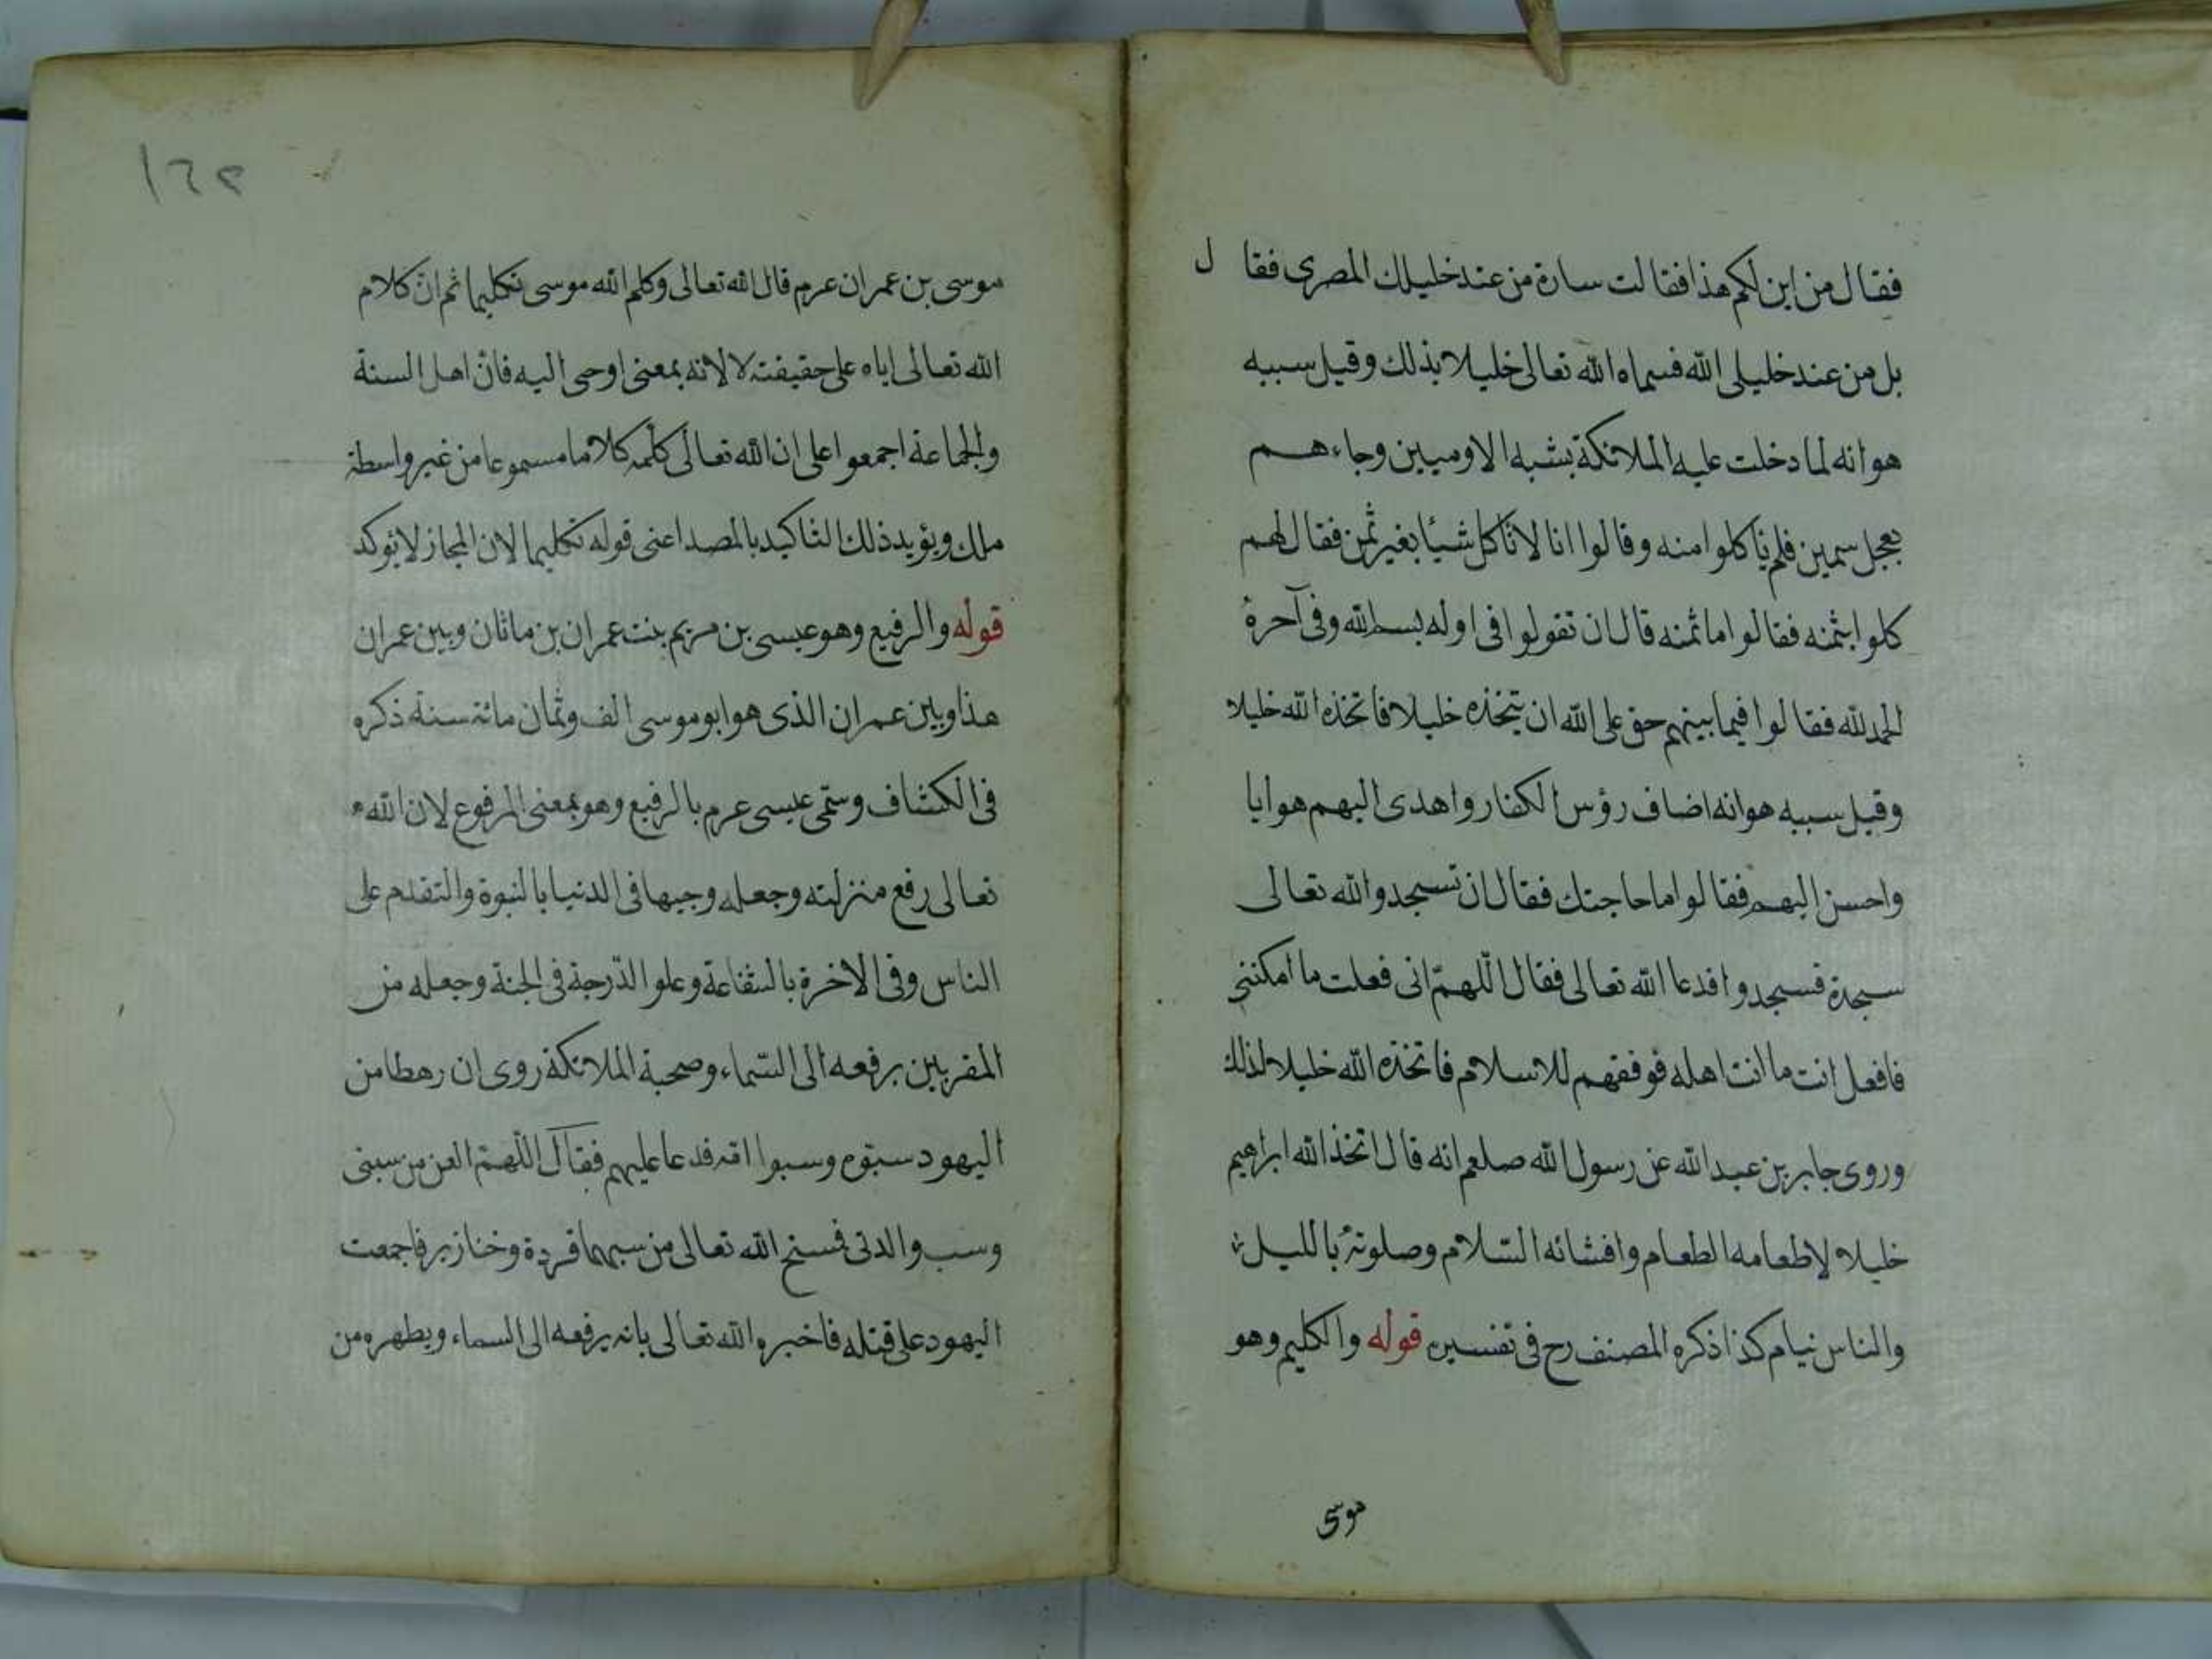 فقال من اين لكم هذا فقالت سارة من عند خليلك المصرى فقال
بل من عند خليلى الله فسماه الله تعالى خليلا بذلك وقيل سببه
هو انه لما دخلت عليه الملائكة بشبه الاوميين وجاءهم
بعجل سمين فلم ياكلوا منه وقالوا انا لا ناكل شيئا بغير ثمن فقال لهم
كلوا بثمنه فقالوا ما ثمنه قال ان تقولوا فى اوله بسم الله وفى آخره
الحمد لله فقالوا فيما بينهم حق على الله ان يتخذه خليلا فاتخذه الله خليلا
وقيل سببه هو انه اضاف رؤس الكفار واهدى اليهم هوايا
واحسن اليهم فقالوا ما حاجتك فقال ان تسجدوا لله تعالى
سجدة فسجدوا فدعا الله تعالى فقال اللهمّ انى فعلت ما امكننى
فافعل انت ما انت اهله فوفقهم للاسلام فاتخذه الله خليلا لذلك
وروى جابر بن عبد الله عن رسول الله صلعم انه قال اتخذ الله ابراهيم
خليلا لاطعامه الطعام وافشائه السّلام وصلوته بالليل
والناس نيام كذا ذكره المصنف رح فى تفسيره قوله والكليم وهو
موسى
١٦٢
موسى بن عمران عرم قال الله تعالى وكلم الله موسى تكليما ثم انّ كلام
الله تعالى اياه على حقيقته لا لانه بمعنى اوحى اليه فانّ اهل السنة
والجماعة اجمعوا على ان الله تعالى كلّمه كلاما مسموعا من غير واسطة
ملك ويؤيد ذلك التاكيد بالمصدا عنى قوله تكليما لان المجاز لا يوكد
قوله والرفيع وهو عيسى بن مريم بنت عمران بن ماثان وبين عمران
هذا وبين عمران الذى هو ابو موسى الف وثمان مائة سنة ذكره
فى الكشاف وسمّى عيسى عرم بالرفيع وهو بمعنى المرفوع لان الله
تعالى رفع منزلته وجعله وجيها فى الدنيا بالنبوة والتقدم على
الناس وفى الاخرة بالشفاعة وعلو الدّرجة فى الجنة وجعله من
المقربين برفعه الى السّماء وصحبة الملائكة روى ان رهطا من
اليهود سبّوه وسبوا امّه فدعا عليهم فقال اللّهمّ العن من سبنى
وسب والدتى فمسخ الله تعالى من سبهما قردة وخنازير فاجمعت
اليهود على قتله فاخبره الله تعالى بانه يرفعه الى السماء ويطهره من